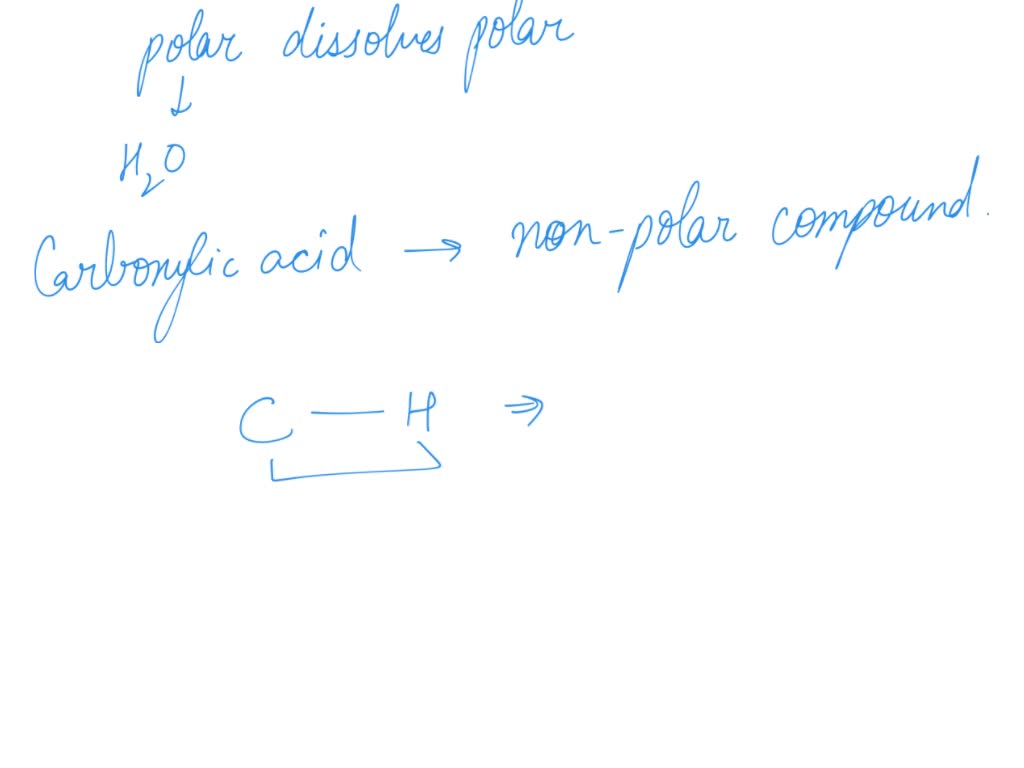 polar dissolves polar
↓
H₂O
Carbonylic acid → non-polar compound.
C — H ⇒